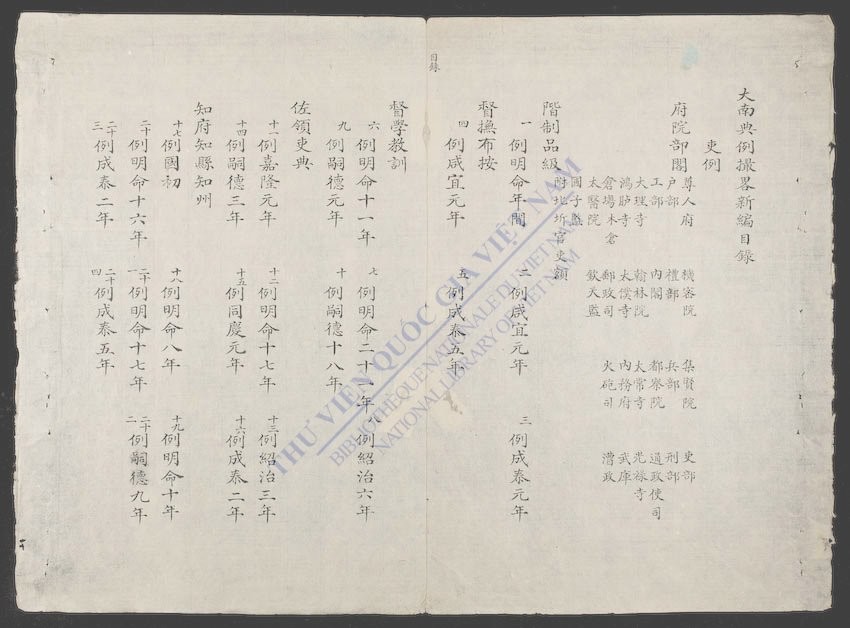 大南典例撮畧新編目錄
吏例
府院部閣
尊人府 機密院 集賢院 吏部
戶部 禮部 兵部 刑部
工部 內閣 都察院 通政使司
大理寺 翰林院 太常寺 光祿寺
鴻臚寺 太僕寺 內務府 武庫
倉場木倉 郵政司 火砲司 漕政
太醫院 欽天監
國子監
附北圻官吏額
階制品級
一 例明命年間 二 例咸宜元年 三 例成泰元年
督撫布按
四 例咸宜元年 五 例成泰五年
目錄
督學教訓
六 例明命十一年 七 例明命二十一年 八 例紹治六年
九 例嗣德元年 十 例嗣德十八年
佐領吏典
十一 例嘉隆元年 十二 例明命十七年 十三 例紹治三年
十四 例嗣德三年 十五 例同慶元年 十六 例成泰二年
知府知縣知州
十七 例國初 十八 例明命八年 十九 例明命十年
二十 例明命十六年 二十一 例明命十七年 二十二 例嗣德九年
二十三 例成泰二年 二十四 例成泰五年
THƯ VIỆN QUỐC GIA VIỆT NAM
BIBLIOTHÈQUE NATIONALE DU VIETNAM
NATIONAL LIBRARY OF VIETNAM